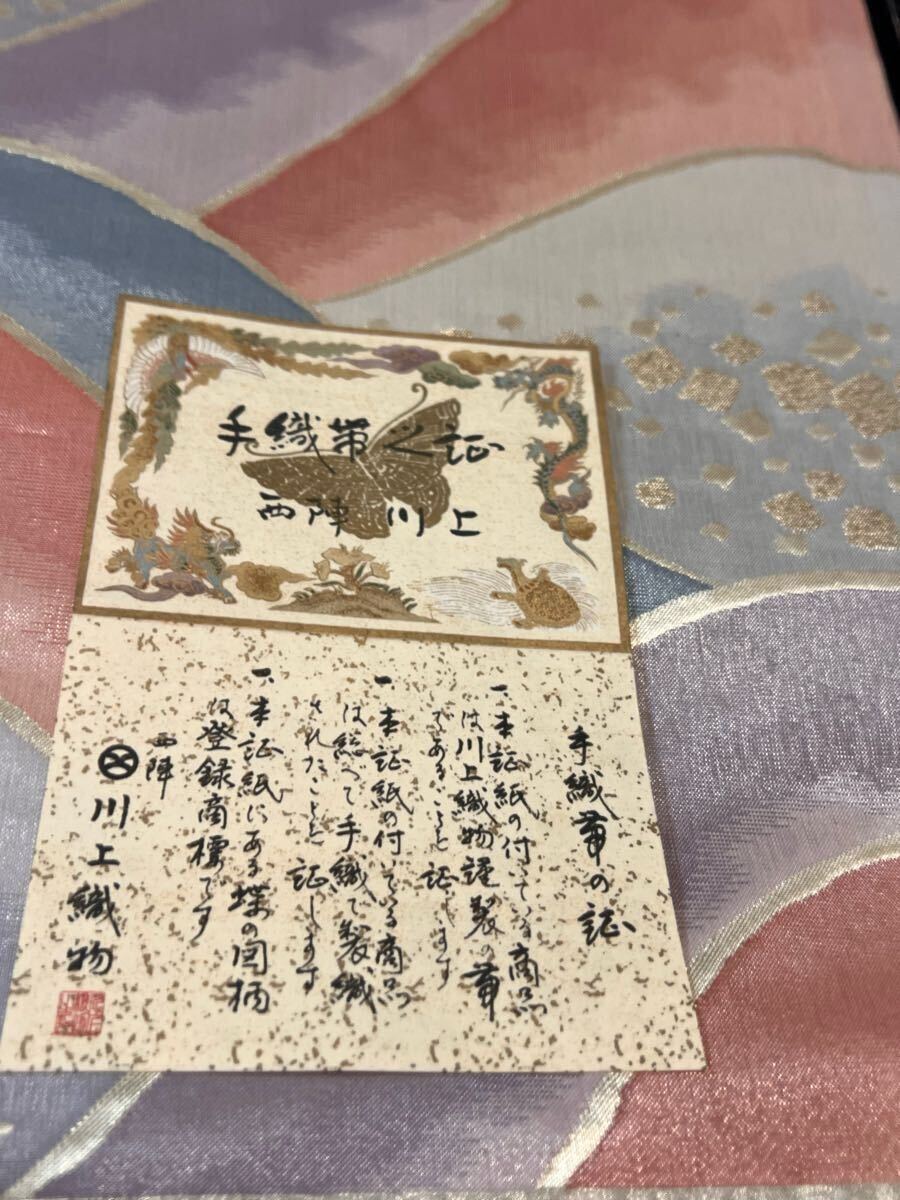 手織帯之証
西陣 川上
手織帯の証
一、本証紙の付いている商品
は川上織物謹製の帯
であることを証します
一、本証紙の付いている商品
は総べて手織で製織
されたことを証します
一、本証紙にある蝶の図柄
は登録商標です
西陣
川上織物